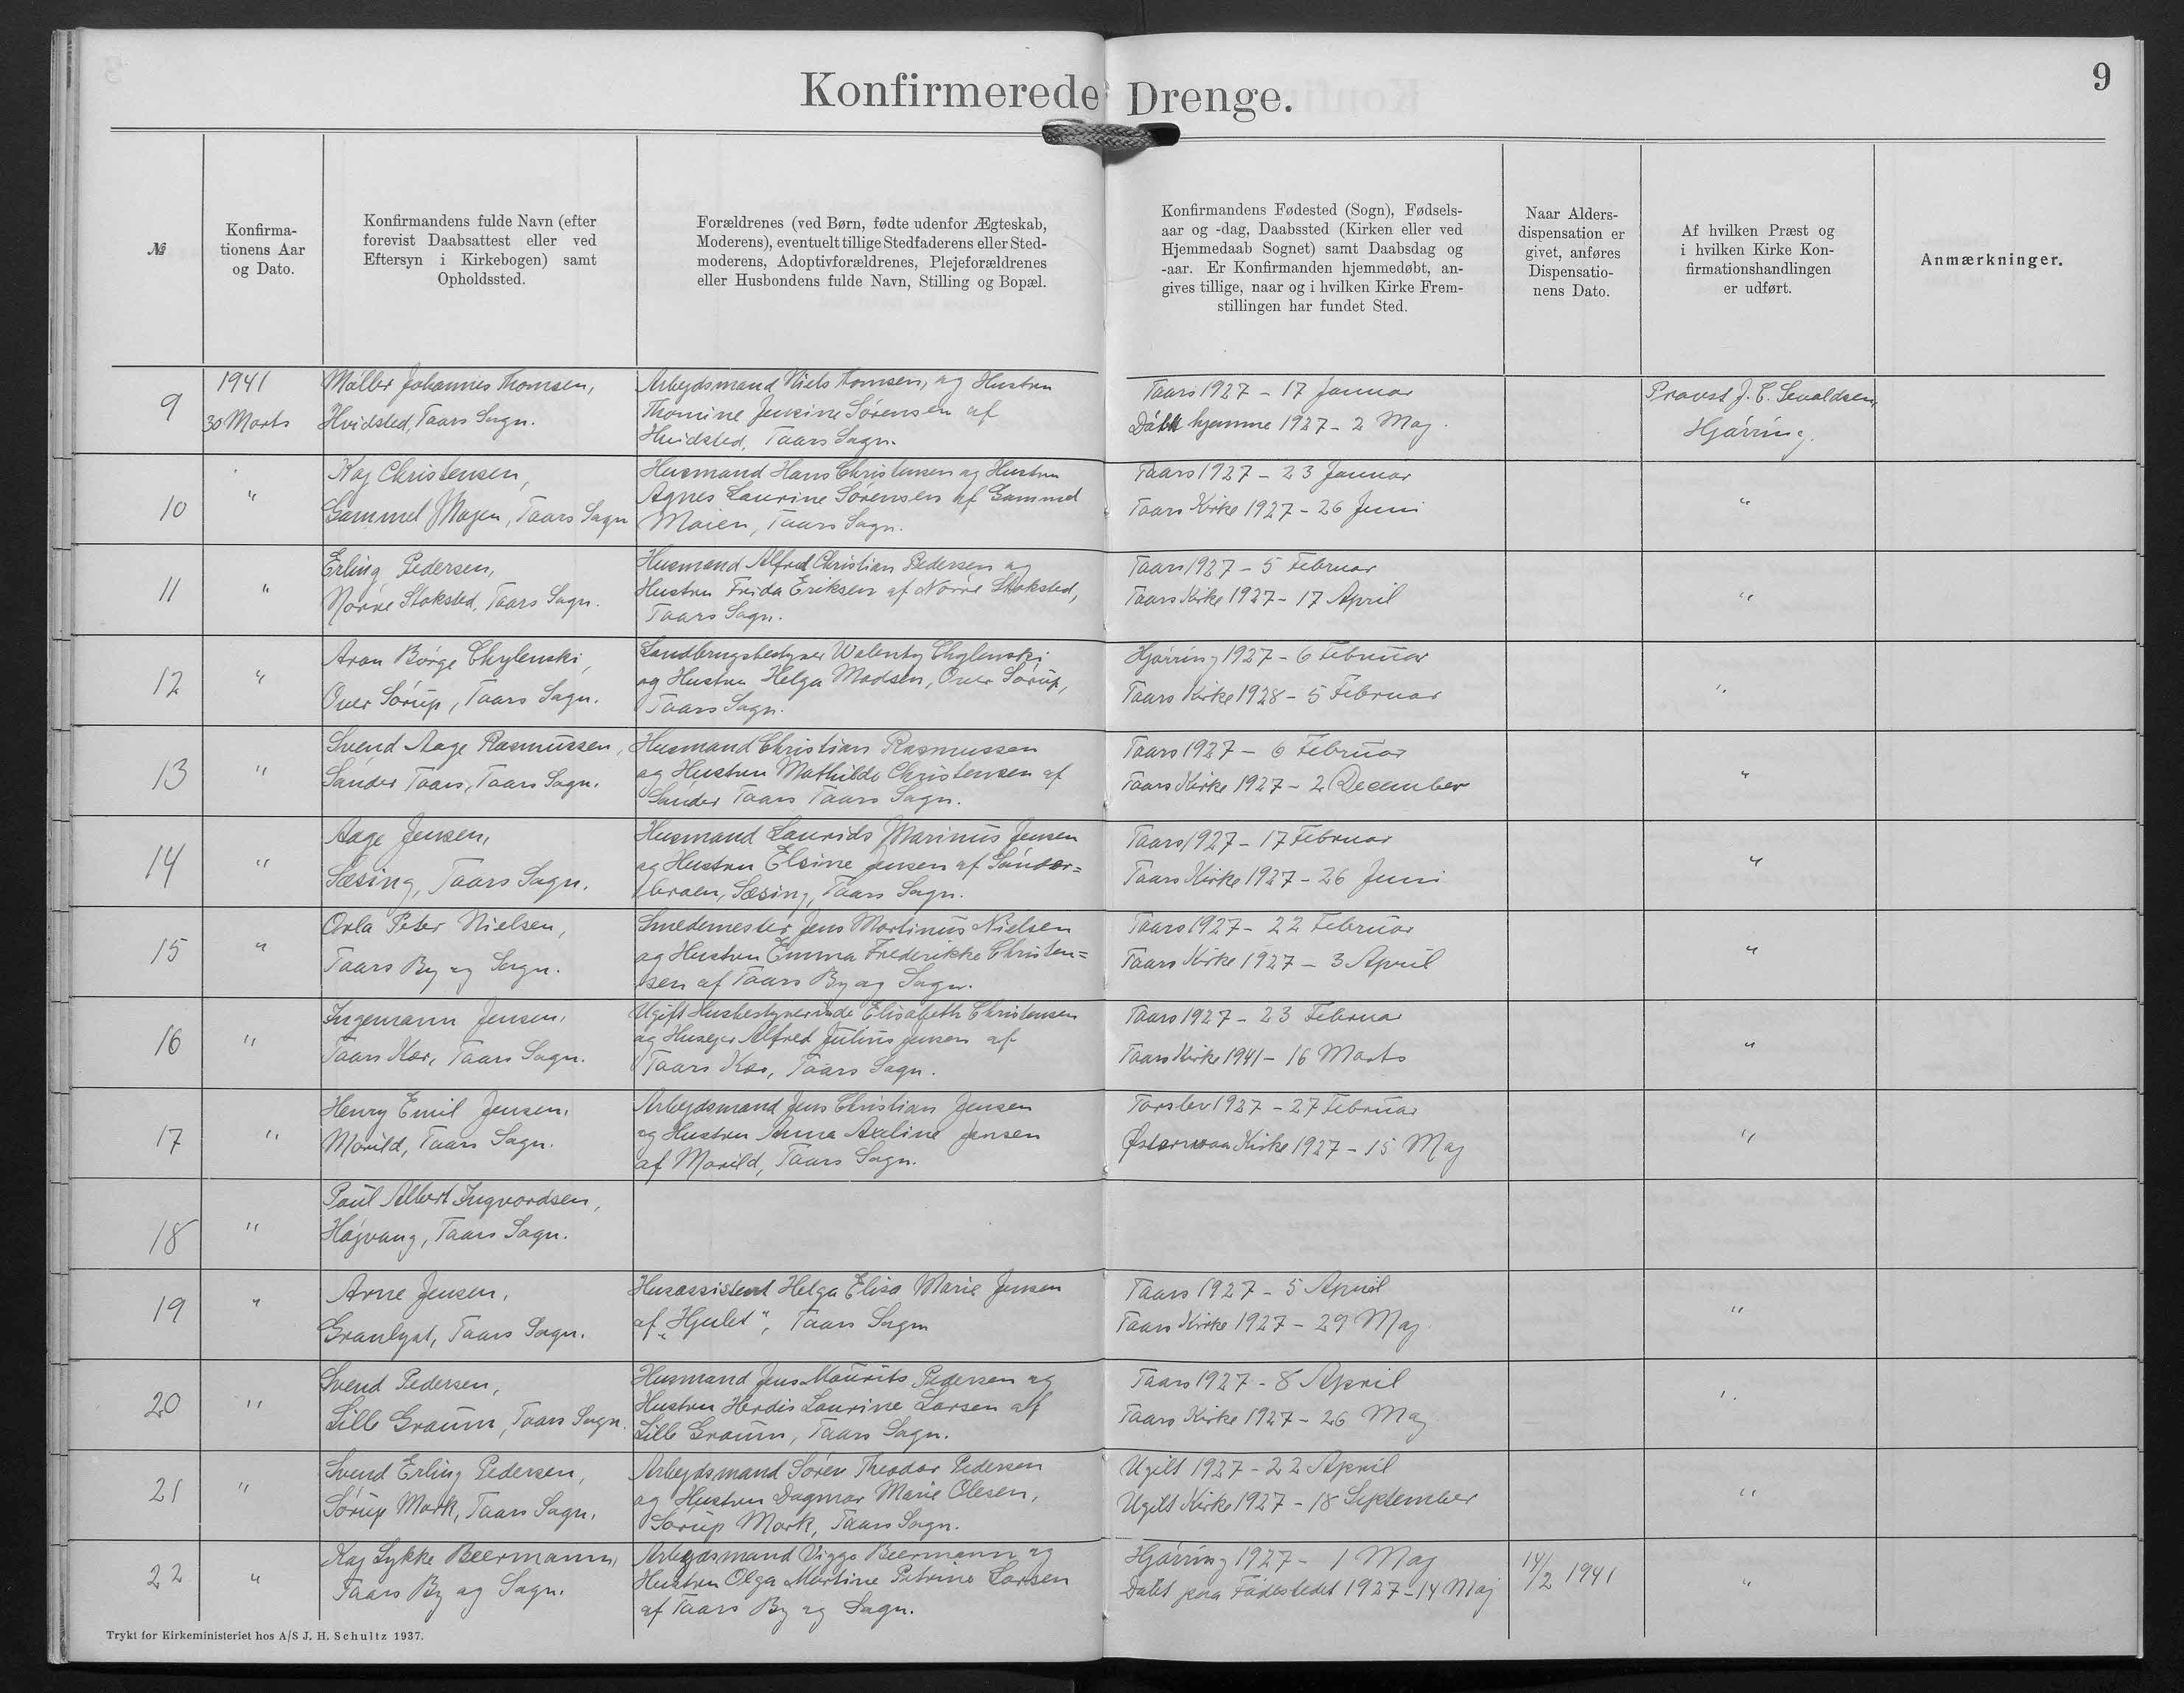 Konfirmerede Drenge.
9
№
Konfirma-
tionens Aar
og Dato.
Konfirmandens fulde Navn (efter
forevist Daabsattest eller ved
Eftersyn i Kirkebogen) samt
Opholdssted.
Forældrenes (ved Børn, fødte udenfor Ægteskab,
Moderens), eventuelt tillige Stedfaderens eller Sted-
moderens, Adoptivforældrenes, Plejeforældrenes
eller Husbondens fulde Navn, Stilling og Bopæl.
Konfirmandens Fødested (Sogn), Fødsels-
aar og -dag, Daabssted (Kirken eller ved
Hjemmedaab Sognet) samt Daabsdag og
-aar. Er Konfirmanden hjemmedøbt, an-
gives tillige, naar og i hvilken Kirke Frem-
stillingen har fundet Sted.
Naar Alders-
dispensation er
givet, anføres
Dispensatio-
nens Dato.
Af hvilken Præst og
i hvilken Kirke Kon-
firmationshandlingen
er udført.
Anmærkninger.
9
1941
30 Marts
Møller Johannes Thomsen,
Hvidsted, Taars Sogn.
Arbejdsmand Niels Thomsen, og Hustru
Thomine Jensine Sørensen af
Hvidsted, Taars Sogn.
Taars 1927 - 17 Januar
Døbt hjemme 1927 - 2 Maj.
Provst J. C. Sevaldsen,
Hjørring.
10
"
Kaj Christensen,
Gammel Mejen, Taars Sogn
Husmand Hans Christensen og Hustru
Agnes Laurine Sørensen af Gammel
Maien, Taars Sogn.
Taars 1927 - 23 Januar
Taars Kirke 1927 - 26 Juni
"
11
"
Erling Pedersen,
Nørre Stoksted, Taars Sogn.
Husmand Alfred Christian Pedersen og
Hustru Frida Eriksen af Nørre Stoksted,
Taars Sogn.
Taars 1927 - 5 Februar
Taars Kirke 1927 - 17 April
"
12
"
Aron Børge Chylenski,
Over Sørup, Taars Sogn.
Landbrugsbestyrer Walenty Chylenski
og Hustru Helga Madsen, Over Sørup,
Taars Sogn.
Hjørring 1927 - 6 Februar
Taars Kirke 1928 - 5 Februar
"
13
"
Svend Aage Rasmussen,
Sønder Taars, Taars Sogn.
Husmand Christian Rasmussen
og Hustru Mathilde Christensen af
Sønder Taars Taars Sogn.
Taars 1927 - 6 Februar
Taars Kirke 1927 - 2 December
"
14
"
Aage Jensen,
Sæsing, Taars Sogn.
Husmand Laurids Marinus Jensen
og Hustru Elsine Jensen af Sønder=
braen, Sæsing, Taars Sogn.
Taars 1927 - 17 Februar
Taars Kirke 1927 - 26 Juni
"
15
"
Orla Peter Nielsen,
Taars By og Sogn.
Smedemester Jens Martinus Nielsen
og Hustru Emma Frederikke Christen=
sen af Taars By og Sogn.
Taars 1927 - 22 Februar
Taars Kirke 1927 - 3 April
"
16
"
Ingemann Jensen,
Taars Kær, Taars Sogn.
Ugift Husbestyrerinde Elisabeth Christensen
og Husejer Alfred Julius Jensen af
Taars Kær, Taars Sogn.
Taars 1927 - 23 Februar
Taars Kirke 1941 - 16 Marts
"
17
"
Henry Emil Jensen,
Morild, Taars Sogn.
Arbejdsmand Jens Christian Jensen
og Hustru Anna Axeline Jensen
af Morild, Taars Sogn.
Torslev 1927 - 27 Februar
Østervraa Kirke 1927 - 15 Maj
"
18
"
Poul Albert Ingvordsen,
Højvang, Taars Sogn.
19
"
Arne Jensen,
Granlyst, Taars Sogn.
Husassistent Helga Elisa Marie Jensen
af "Hjulet", Taars Sogn
Taars 1927 - 5 April
Taars Kirke 1927 - 29 Maj.
"
20
"
Svend Pedersen,
Lille Graum, Taars Sogn.
Husmand Jens Maurits Pedersen og
Hustru Herdis Laurine Larsen af
Lille Graum, Taars Sogn.
Taars 1927 - 8 April
Taars Kirke 1927 - 26 Maj
"
21
"
Svend Erling Pedersen,
Sørup Mark, Taars Sogn.
Arbejdsmand Søren Theodor Pedersen
og Hustru Dagmar Marie Olesen,
Sørup Mark, Taars Sogn.
Ugilt 1927 - 22 April
Ugilt Kirke 1927 - 18 September
"
22
"
Kaj Lykke Beermann,
Taars By og Sogn.
Arbejdsmand Viggo Beermann og
Hustru Olga Martine Petrine Larsen
af Taars By og Sogn.
Hjørring 1927 - 1 Maj
Døbt paa Fødestedet 1927 - 14 Maj
14/2 1941
"
Trykt for Kirkeministeriet hos A/S J. H. Schultz 1937.